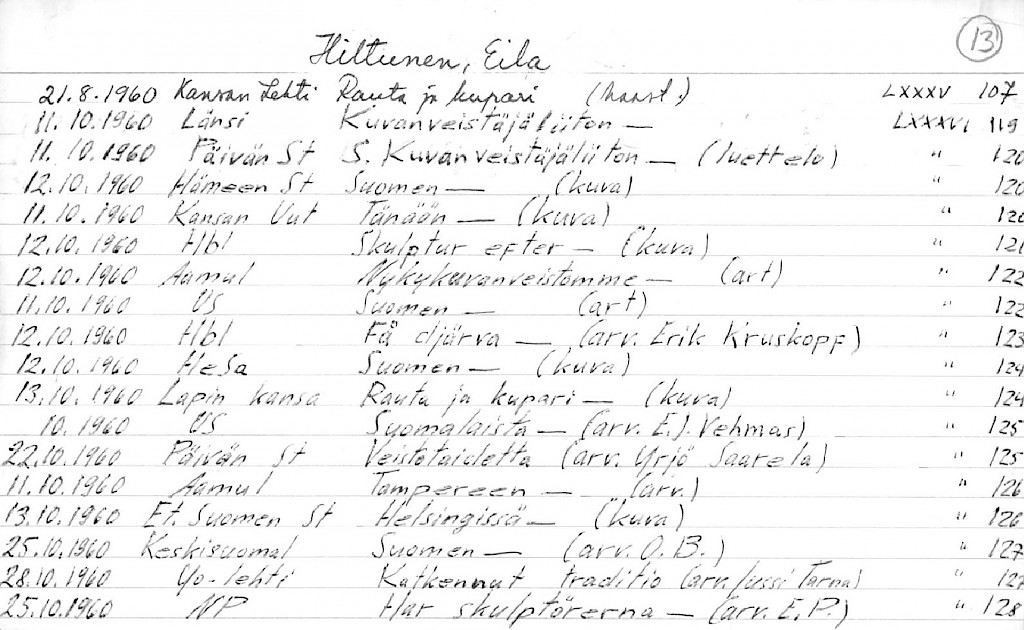 13
Hiltunen, Eila
21.8.1960 Kansan Lehti Rauta ja kupari (haast.) LXXXV 107
11.10.1960 Länsi Kuvanveistäjäliiton — LXXXVI 119
11.10.1960 Päivän St S. Kuvanveistäjäliiton — (luettelo) " 120
12.10.1960 Hämeen St Suomen — (kuva) " 120
11.10.1960 Kansan Uut Tänään — (kuva) " 120
12.10.1960 Hbl Skulptur efter — (kuva) " 121
12.10.1960 Aamul Nykykuvanveistomme — (art) " 122
11.10.1960 US Suomen — (art) " 122
12.10.1960 Hbl Få djärva — (arv. Erik Kruskopf) " 123
12.10.1960 HeSa Suomen — (kuva) " 124
13.10.1960 Lapin kansa Rauta ja kupari — (kuva) " 124
10.1960 US Suomalaista — (arv. E.J. Vehmas) " 125
22.10.1960 Päivän St Veistotaidetta (arv. Yrjö Saarela) " 125
11.10.1960 Aamul Tampereen — (arv.) " 126
13.10.1960 Et. Suomen St Helsingissä — (kuva) " 126
25.10.1960 Keskisuomal Suomen — (arv. O.B.) " 127
28.10.1960 Yo-lehti Katkennut traditio (arv. Jussi Tarna) " 127
25.10.1960 NP Har skulptörerna — (arv. E.P.) " 128